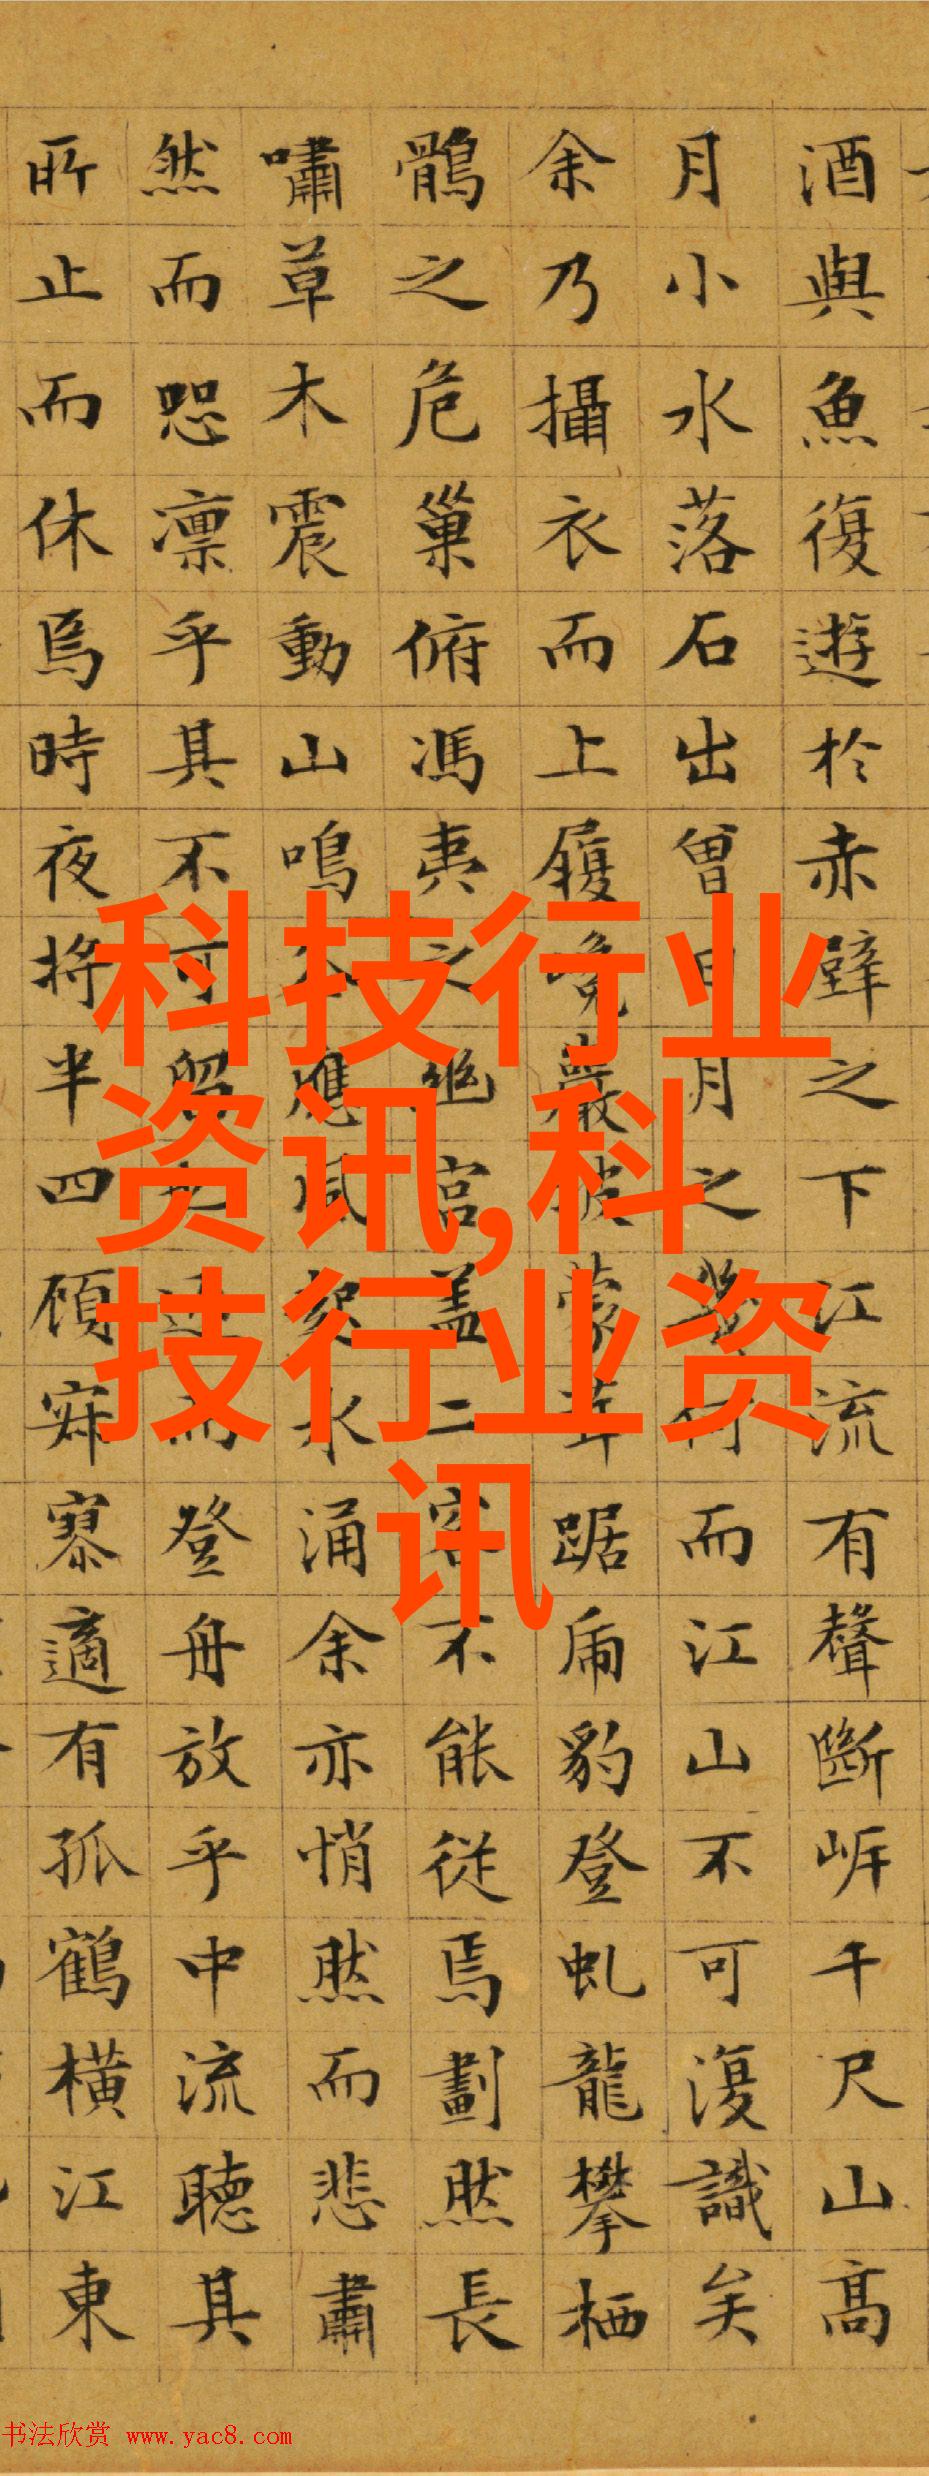 酒與魚復遊於赤壁之下江流有聲斷岸千尺山高
月小水落石出曾日月之幾何而江山不可復識矣
余乃攝衣而上履巉巖披蒙茸踞虎豹登虬龍攀栖
鶻之危巢俯馮夷之幽宮盖二客不能從焉劃然長
嘯草木震動山鳴谷應風起水涌余亦悄然而悲肅
然而恐凛乎其不可留也返而登舟放乎中流聽其
所止而休焉時夜將半四顧寂寥適有孤鶴橫江東
科技行业
资讯,科
技行业资
讯
书法欣赏 www.yac8.com